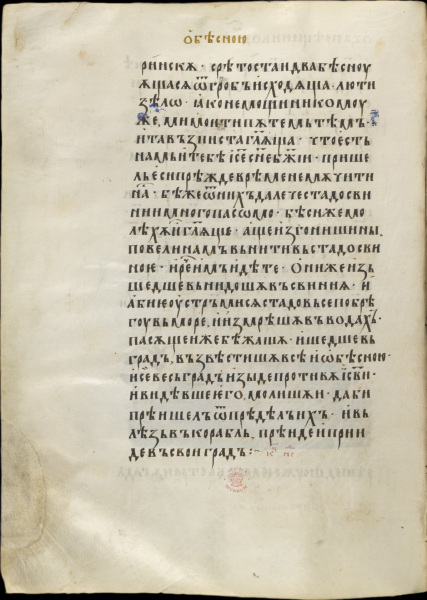 ѡбѣсною
ринскѫ · срѣтоста и два бѣсноу
ѧщасѧ ѿ гробъ исходѧща · люти
ѕѣлѡ · ꙗко не мощи никомоу
же, мимоити пѫтемь тѣмъ ·
и та възписта гл҃ѧща · что есть
нама и тебѣ і҃се с҃не б҃жїи · прише
ль еси прѣжде врѣмене мѫчити
на · бѣ же ѿ нихъ далече стадо сви
нии много пасомо · бѣси же мо
лѣхѫ и гл҃ѧще · аще изгониши ны,
повели намъ вънити въ стадо сви
ною · и рече имъ идѣте · они же изь
шедше вънидошѧ въ свиниѧ · и
абие оустръмисѧ стадо вьсе по брѣ
гоу въ море, и измрѣшѧ въ водахъ ·
пасѫщеи же бѣжашѧ · и шедше въ
градъ, възвѣстишѧ всѣ и ѡ бѣсною ·
и се весь градъ изыде противѫ і҃сви ·
и видѣвше его, молишѧ и · да би
прѣишелъ ѿ прѣдѣлъ ихъ · и въ
лѣзъ въ корабль, прѣиде и прии
де въ свои градъ :~